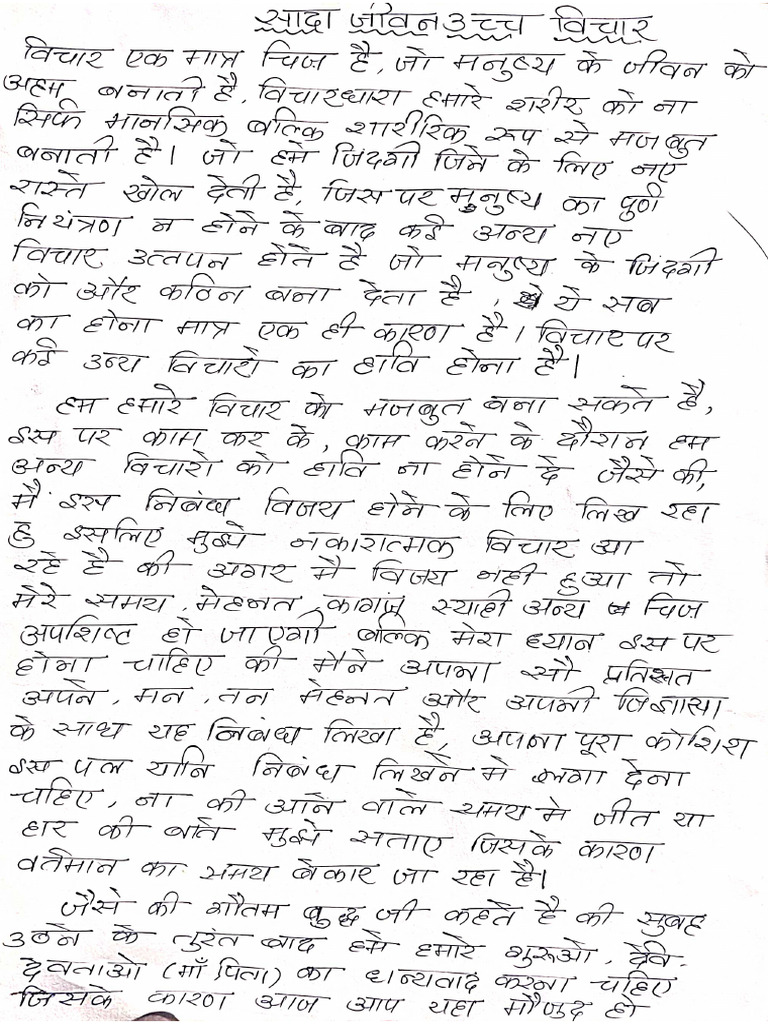 सादा जीवन उच्च विचार
विचार एक मात्र चिज है, जो मनुष्य के जीवन को
अहम बनाती है, विचारधारा हमारे शरीर को ना
सिर्फ मानसिक बल्कि शारीरिक रूप से मजबुत
बनाती है। जो हमे जिंदगी जिने के लिए नए
रास्ते खोल देती है, जिस पर मनुष्य का पुर्ण
नियंत्रण न होने के बाद कई अन्य नए
विचार उत्तपन होते है जो मनुष्य के जिंदगी
को और कठिन बना देता है, ये सब
का होना मात्र एक ही कारण है। विचार पर
कई उन्य विचारो का हावि होना है।
हम हमारे विचार को मजबुत बना सकते है,
इस पर काम कर के, काम करने के दौरान हम
अन्य विचारो को हावि ना होने दे जैसे की,
मै इस निबंध विजय होने के लिए लिख रहा
हु इसलिए मुझे नकारात्मक विचार आ
रहे है की अगर मै विजय नही हुआ तो
मेरे समय, मेहनत, कागज, स्याही अन्य चिज
अपशिष्ट हो जाएगी बल्कि मेरा ध्यान इस पर
होना चाहिए की मैने अपना सौ प्रतिशत
अपने, मन, तन मेहनत और अपनी जिज्ञासा
के साथ यह निबंध लिखा है, अपना पूरा कोशिश
इस पल यानि निबंध लिखने मे लगा देना
चहिए, ना की आने वाले समय मे जीत या
हार की बाते मुझे सताए जिसके कारण
वर्तमान का समय बेकार जा रहा है।
जैसे की गौतम बुद्ध जी कहते है की सुबह
उठने के तुरंत बाद हमे हमारे गुरुओ, देवि-
देवताओ (माँ पिता) का धन्यवाद करना चहिए
जिसके कारण आज आप यहा मौजुद हो